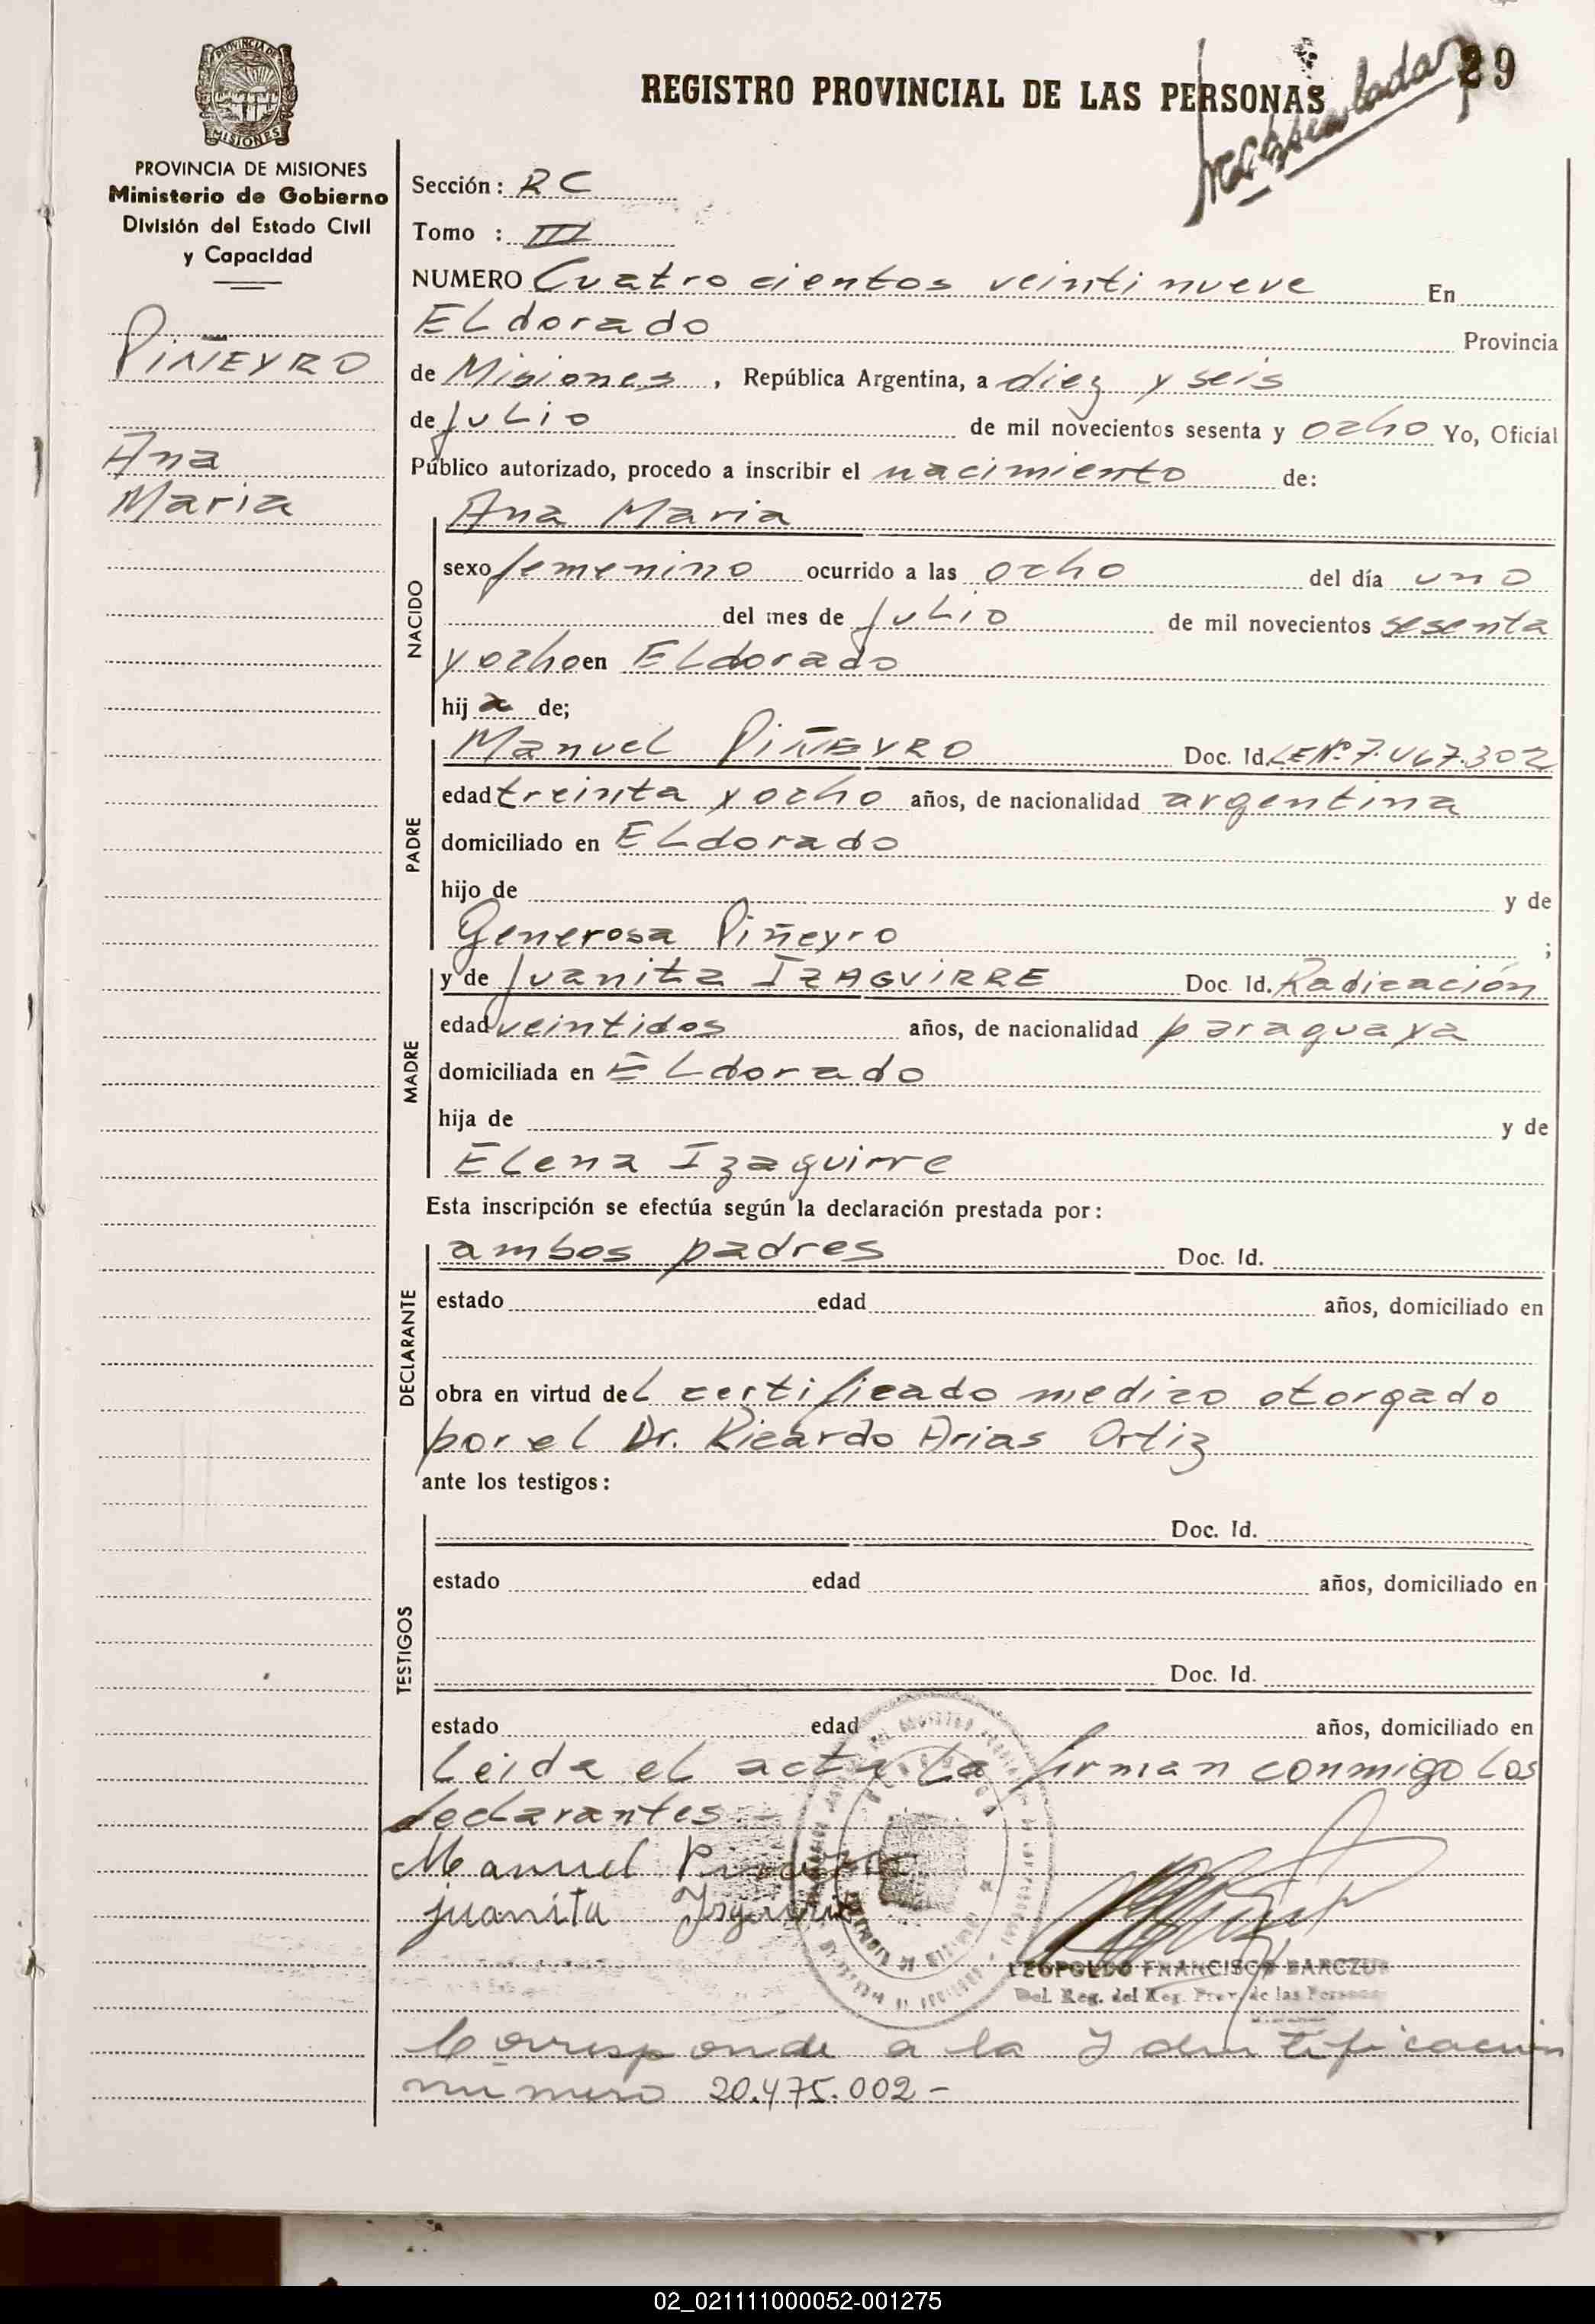 29
REGISTRO PROVINCIAL DE LAS PERSONAS
PROVINCIA DE MISIONES
PROVINCIA DE MISIONES
Ministerio de Gobierno
División del Estado Civil
y Capacidad
PIÑEYRO
Ana
Maria
Sección: RC
Tomo : III
NUMERO Cuatrocientos veintinueve En
ELdorado Provincia
de Misiones, República Argentina, a diez y seis
de JuLio de mil novecientos sesenta y ocho Yo, Oficial
Público autorizado, procedo a inscribir el nacimiento de:
NACIDO
Ana Maria
sexo femenino ocurrido a las ocho del día uno
del mes de JuLio de mil novecientos sesenta
y ocho en ELdorado
hija de;
PADRE
ManueL PIÑEYRO Doc. Id. LE Nº 7.467.302
edad treinta y ocho años, de nacionalidad argentina
domiciliado en ELdorado
hijo de y de
Generosa Piñeyro ;
MADRE
y de Juanita IZAGUIRRE Doc. Id. Radicación
edad veintidos años, de nacionalidad paraguaya
domiciliada en ELdorado
hija de y de
ELena Izaguirre
Esta inscripción se efectúa según la declaración prestada por:
DECLARANTE
ambos padres Doc. Id.
estado edad años, domiciliado en
obra en virtud deL certificado medico otorgado
por el Dr. Ricardo Arias Ortiz
ante los testigos:
TESTIGOS
Doc. Id.
estado edad años, domiciliado en
Doc. Id.
estado edad años, domiciliado en
Leida eL acta La firman conmigo Los
declarantes.-
Manuel
juanita
LEOPOLDO FRANCISCO
Del. Reg. del Reg. Prov. de las Personas
Corresponde a la Identificación
numero 20.475.002-
02_021111000052-001275